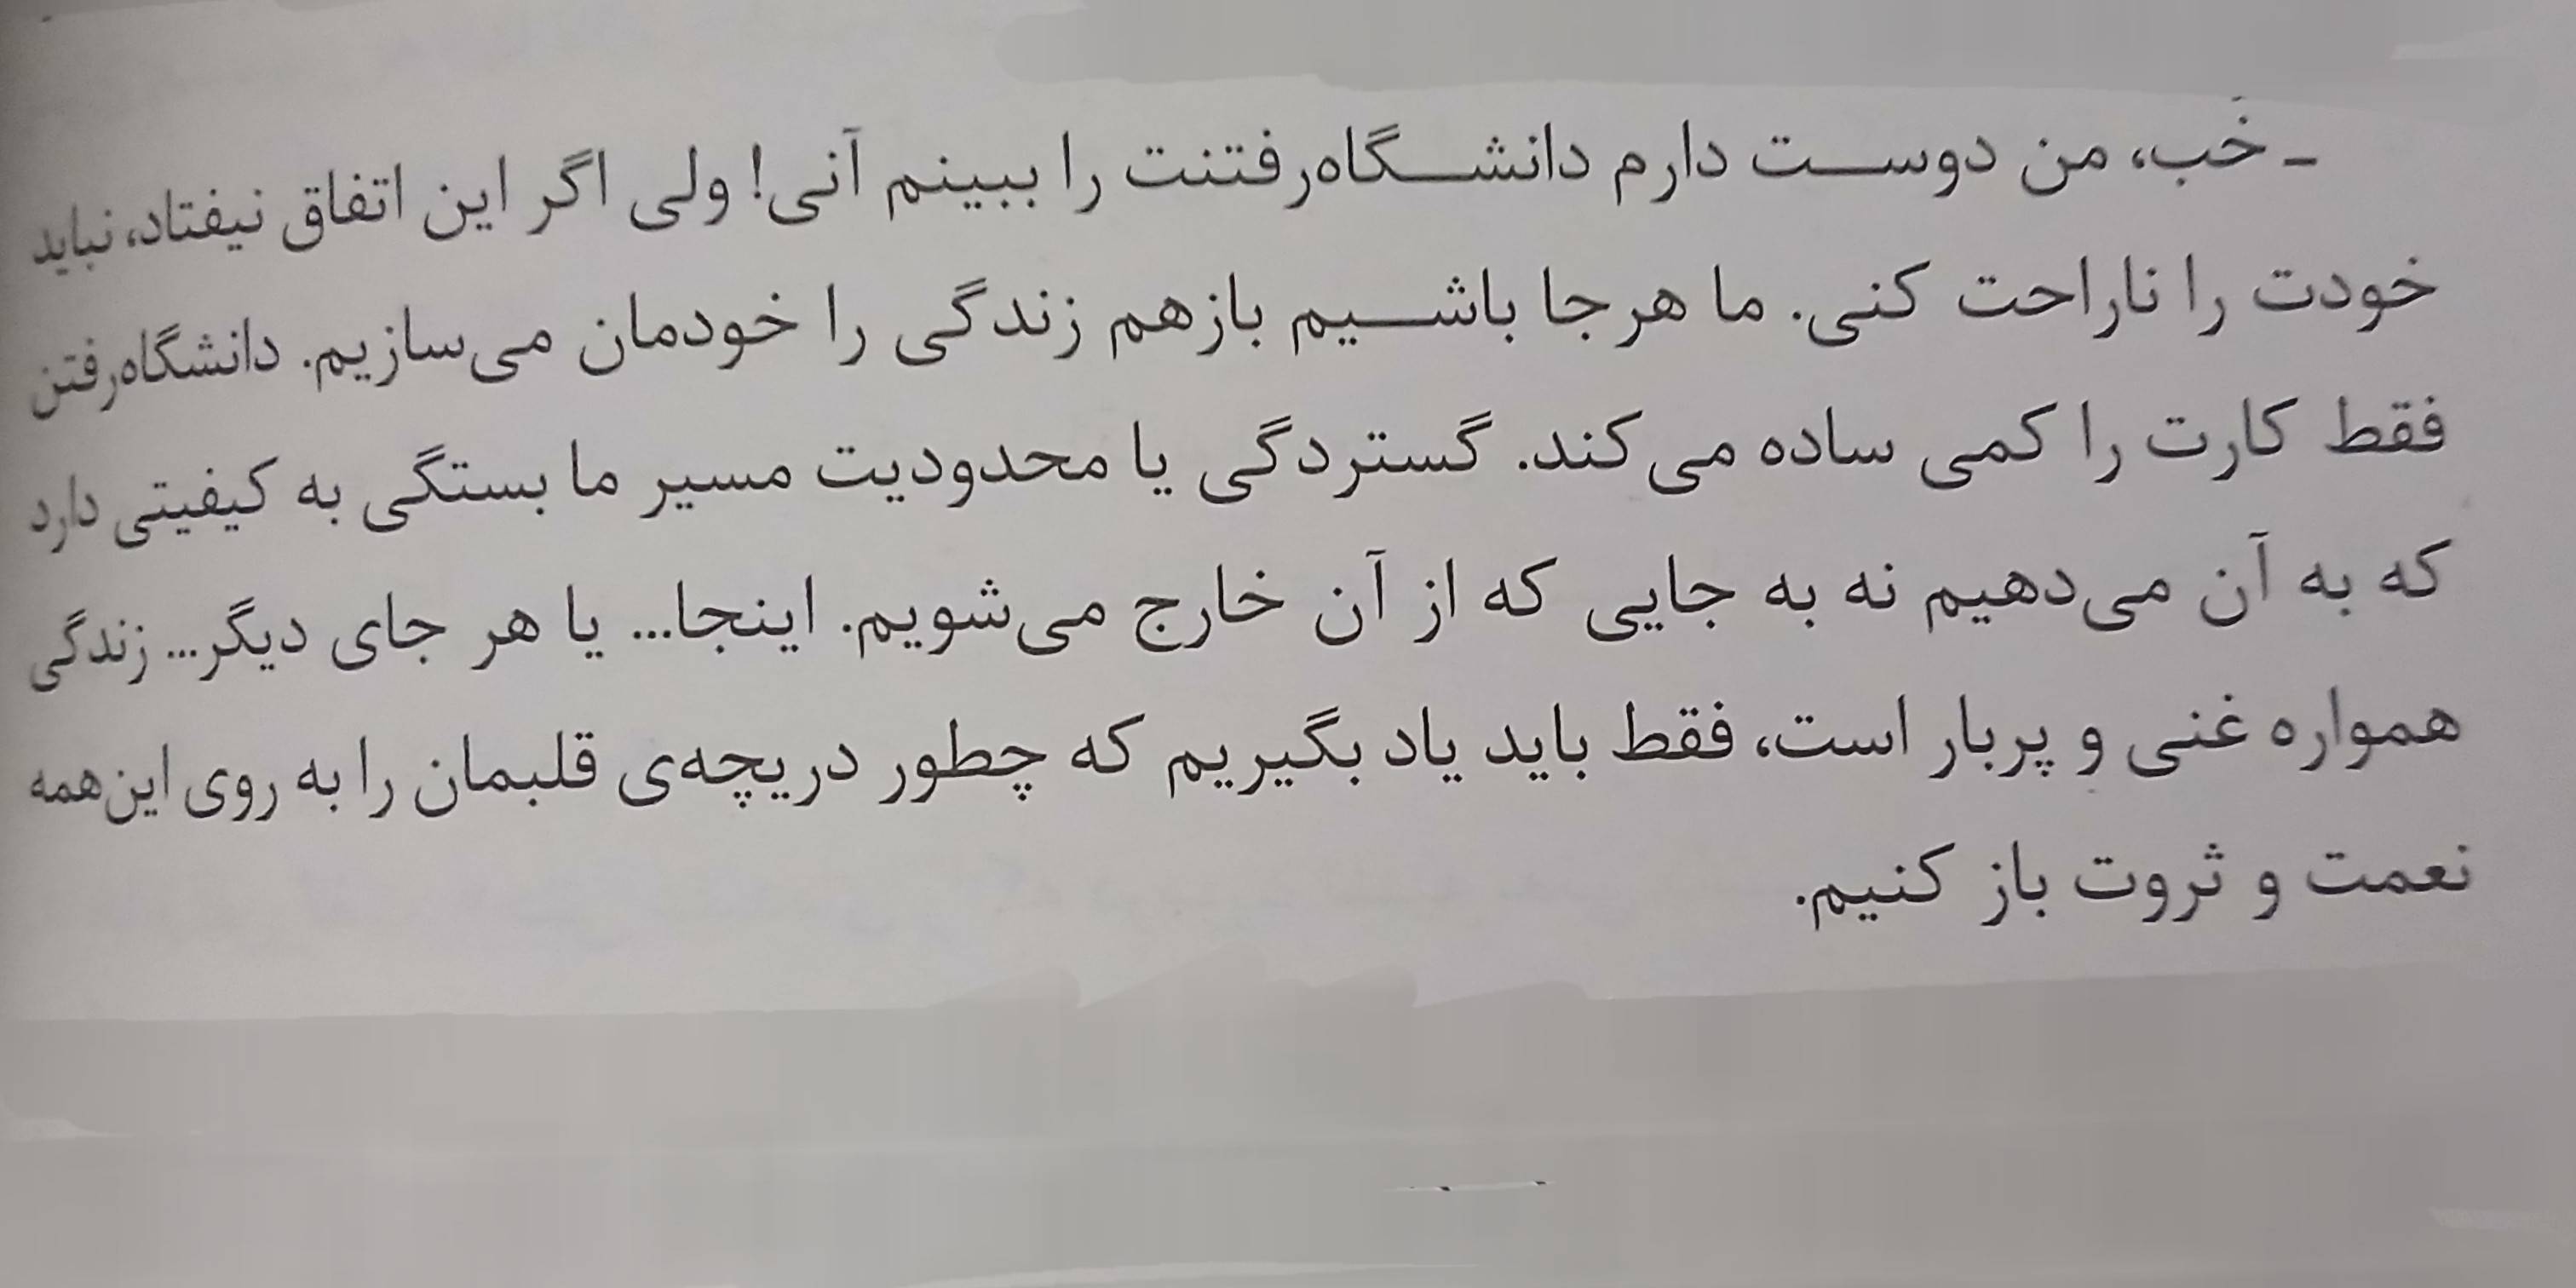 ـ خَب، من دوست دارم دانشگاه‌رفتنت را ببینم آنی! ولی اگر این اتفاق نیفتاد، نباید
خودت را ناراحت کنی. ما هرجا باشیم بازهم زندگی را خودمان می‌سازیم. دانشگاه‌رفتن
فقط کارت را کمی ساده می‌کند. گستردگی یا محدودیت مسیر ما بستگی به کیفیتی دارد
که به آن می‌دهیم نه به جایی که از آن خارج می‌شویم. اینجا... یا هر جای دیگر... زندگی
همواره غنی و پربار است، فقط باید یاد بگیریم که چطور دریچه‌ی قلبمان را به روی این‌همه
نعمت و ثروت باز کنیم.